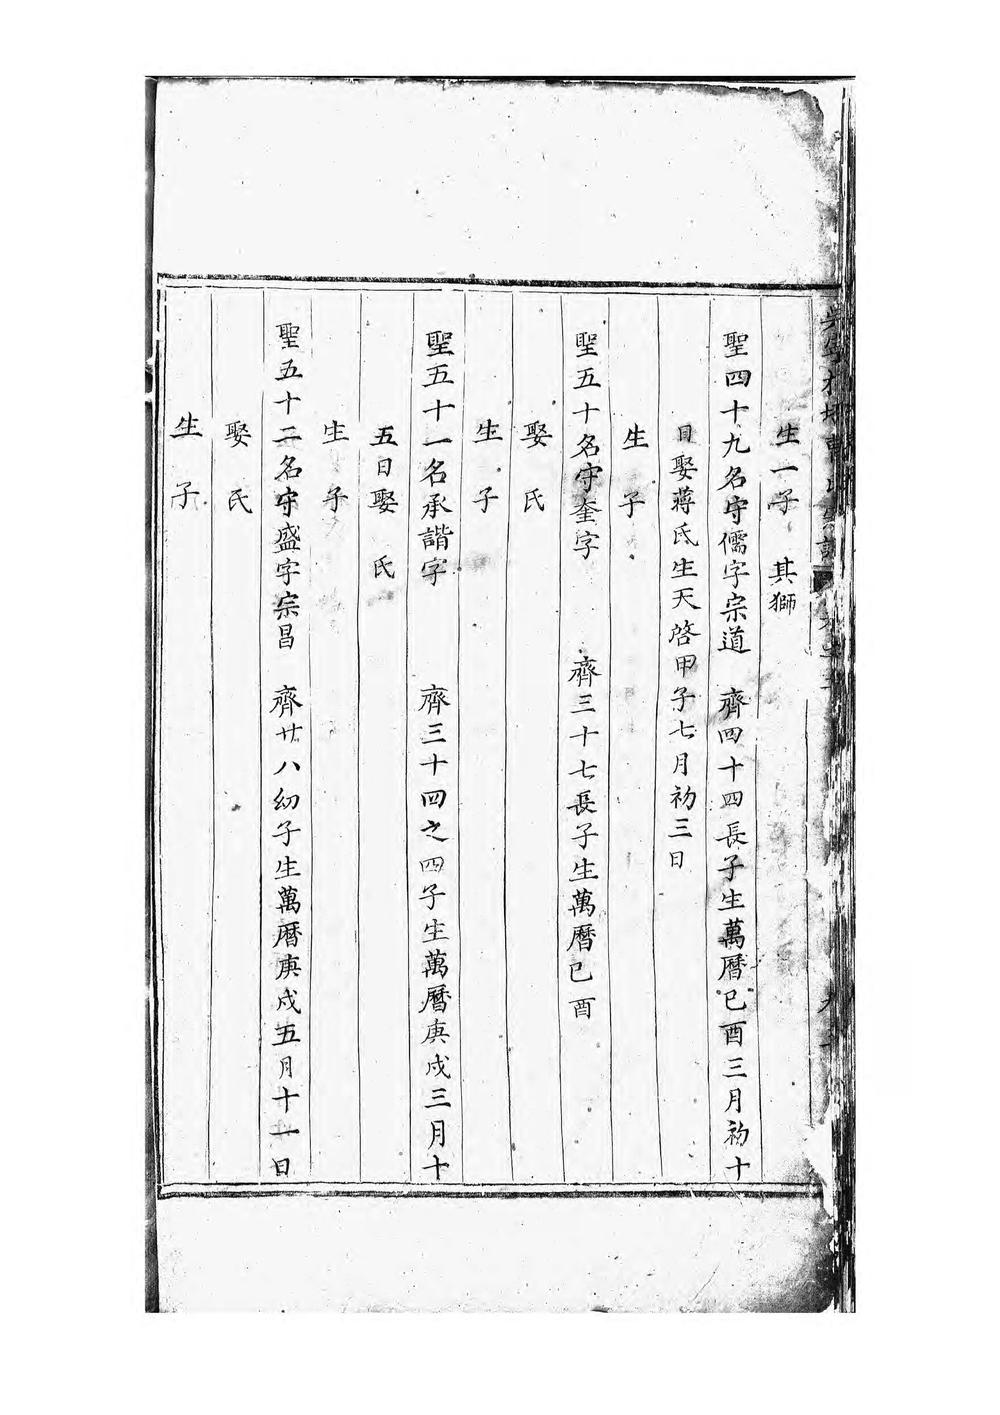 生一子　其獅
聖四十九名守儒字宗道　齊四十四長子生萬曆己酉三月初十
日娶蔣氏生天啓甲子七月初三日
生　子
聖五十名守奎字　齊三十七長子生萬曆己酉
娶　氏
生　子
聖五十一名承諧字　齊三十四之四子生萬曆庚戌三月十
五日娶　氏
生　子
聖五十二名守盛字宗昌　齊廿八幼子生萬曆庚戌五月十一日
娶　氏
生　子